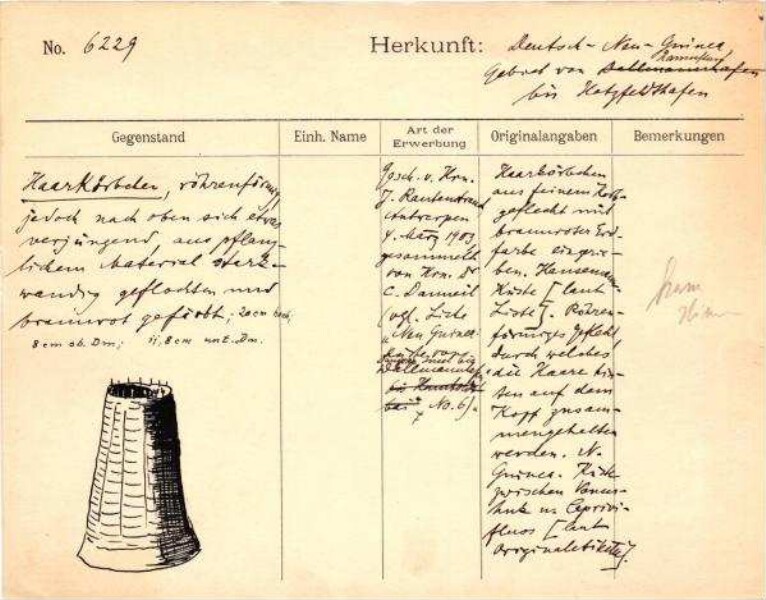 No. 6229
Herkunft: Deutsch-Neu-Guinea,
Gebiet von Dallmannhafen
bis Hatzfeldthafen
Gegenstand
Einh. Name
Art der Erwerbung
Originalangaben
Bemerkungen
Haarkörbchen, röhrenförmig,
jedoch nach oben sich etwas
verjüngend, aus pflanz-
lichem Material starz-
wandig geflochten und
braunrot gefärbt; 20 cm hoch;
8 cm ob. Dm; 11,8 cm unt. Dm.
Gesch. v. Hrn.
J. Rautenstrauch
Antwerpen
4. März 1903
gesammelt
von Hrn. Dr
C. Danneil
(vgl. Liste
"Neu Guinea
Dallmannhafen
No. 6).
Haarkörbchen
aus feinem
geflecht mit
braunroter Erd-
farbe eingerie-
ben. Hansemann-
Küste [laut
Liste]. Röhren-
förmiges Geflecht,
durch welches
die Haare hin-
ten auf dem
Kopf zusam-
mengehalten
werden. N.
Guinea. Küste
zwischen
u. Caprivi-
fluss [laut
Originaletikette].